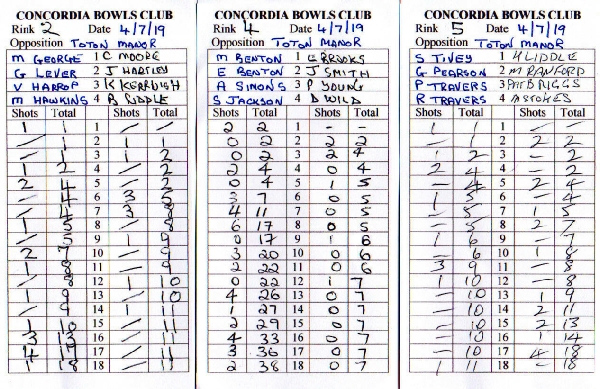 CONCORDIA BOWLS CLUB
Rink 2 Date 4/7/19
Opposition TOTON MANOR
M GEORGE 1 C MOORE
G LEVER 2 J HARTLEY
V HARROP 3 K KERRUISH
M HAWKINS 4 B RIDDLE
Shots Total Shots Total
1 1 1 – –
– 1 2 1 1
– 1 3 1 2
1 2 4 – 2
2 4 5 – 2
– 4 6 3 5
– 4 7 3 8
1 5 8 – 8
– 5 9 1 9
2 7 10 – 9
1 8 11 – 9
– 8 12 1 10
1 9 13 – 10
– 9 14 1 11
1 10 15 – 11
3 13 16 – 11
4 17 17 – 11
1 18 18 – 11
CONCORDIA BOWLS CLUB
Rink 4 Date 4/7/19
Opposition TOTON MANOR
M BENTON 1 C BROOKS
E BENTON 2 J SMITH
A SIMONS 3 P YOUNG
S JACKSON 4 D WILD
Shots Total Shots Total
2 2 1 – –
0 2 2 2 2
0 2 3 2 4
2 4 4 0 4
0 4 5 1 5
3 7 6 0 5
4 11 7 0 5
6 17 8 0 5
0 17 9 1 6
3 20 10 0 6
2 22 11 0 6
0 22 12 1 7
4 26 13 0 7
1 27 14 0 7
2 29 15 0 7
4 33 16 0 7
3 36 17 0 7
2 38 18 0 7
CONCORDIA BOWLS CLUB
Rink 5 Date 4/7/19
Opposition TOTON MANOR
S TIVEY 1 H LIDDLE
G PEARSON 2 M RANFORD
P TRAVERS 3 PAT BRIGGS
R TRAVERS 4 A STOKES
Shots Total Shots Total
1 1 1 – –
– 1 2 2 2
1 2 3 – 2
2 4 4 – 2
– 4 5 2 4
1 5 6 – 4
– 5 7 1 5
– 5 8 2 7
1 6 9 – 7
– 6 10 1 8
3 9 11 – 8
1 10 12 – 8
– 10 13 1 9
– 10 14 2 11
– 10 15 2 13
– 10 16 1 14
– 10 17 4 18
1 11 18 – 18